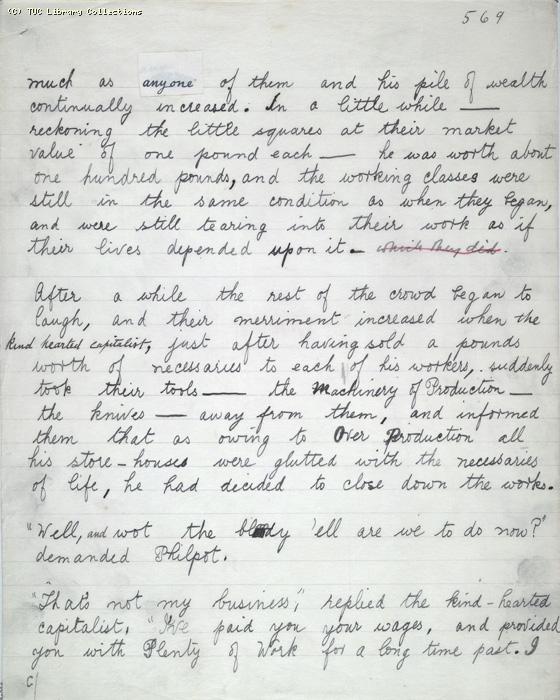 (C) TUC Library Collections
569
much as anyone of them and his pile of wealth
continually increased. In a little while —
reckoning the little squares at their market
value of one pound each — he was worth about
one hundred pounds, and the working classes were
still in the same condition as when they began,
and were still tearing into their work as if
their lives depended upon it — which they did.
After a while the rest of the crowd began to
laugh, and their merriment increased when the
kind hearted capitalist, just after having sold a pounds
worth of necessaries to each of his workers, suddenly
took their tools — the Machinery of Production —
the knives — away from them, and informed
them that as owing to Over Production all
his store-houses were glutted with the necessaries
of life, he had decided to close down the works.
"Well, and wot the bloody 'ell are we to do now?"
demanded Philpot.
"That's not my business", replied the kind-hearted
capitalist. "I've paid you your wages, and provided
you with Plenty of Work for a long time past. I